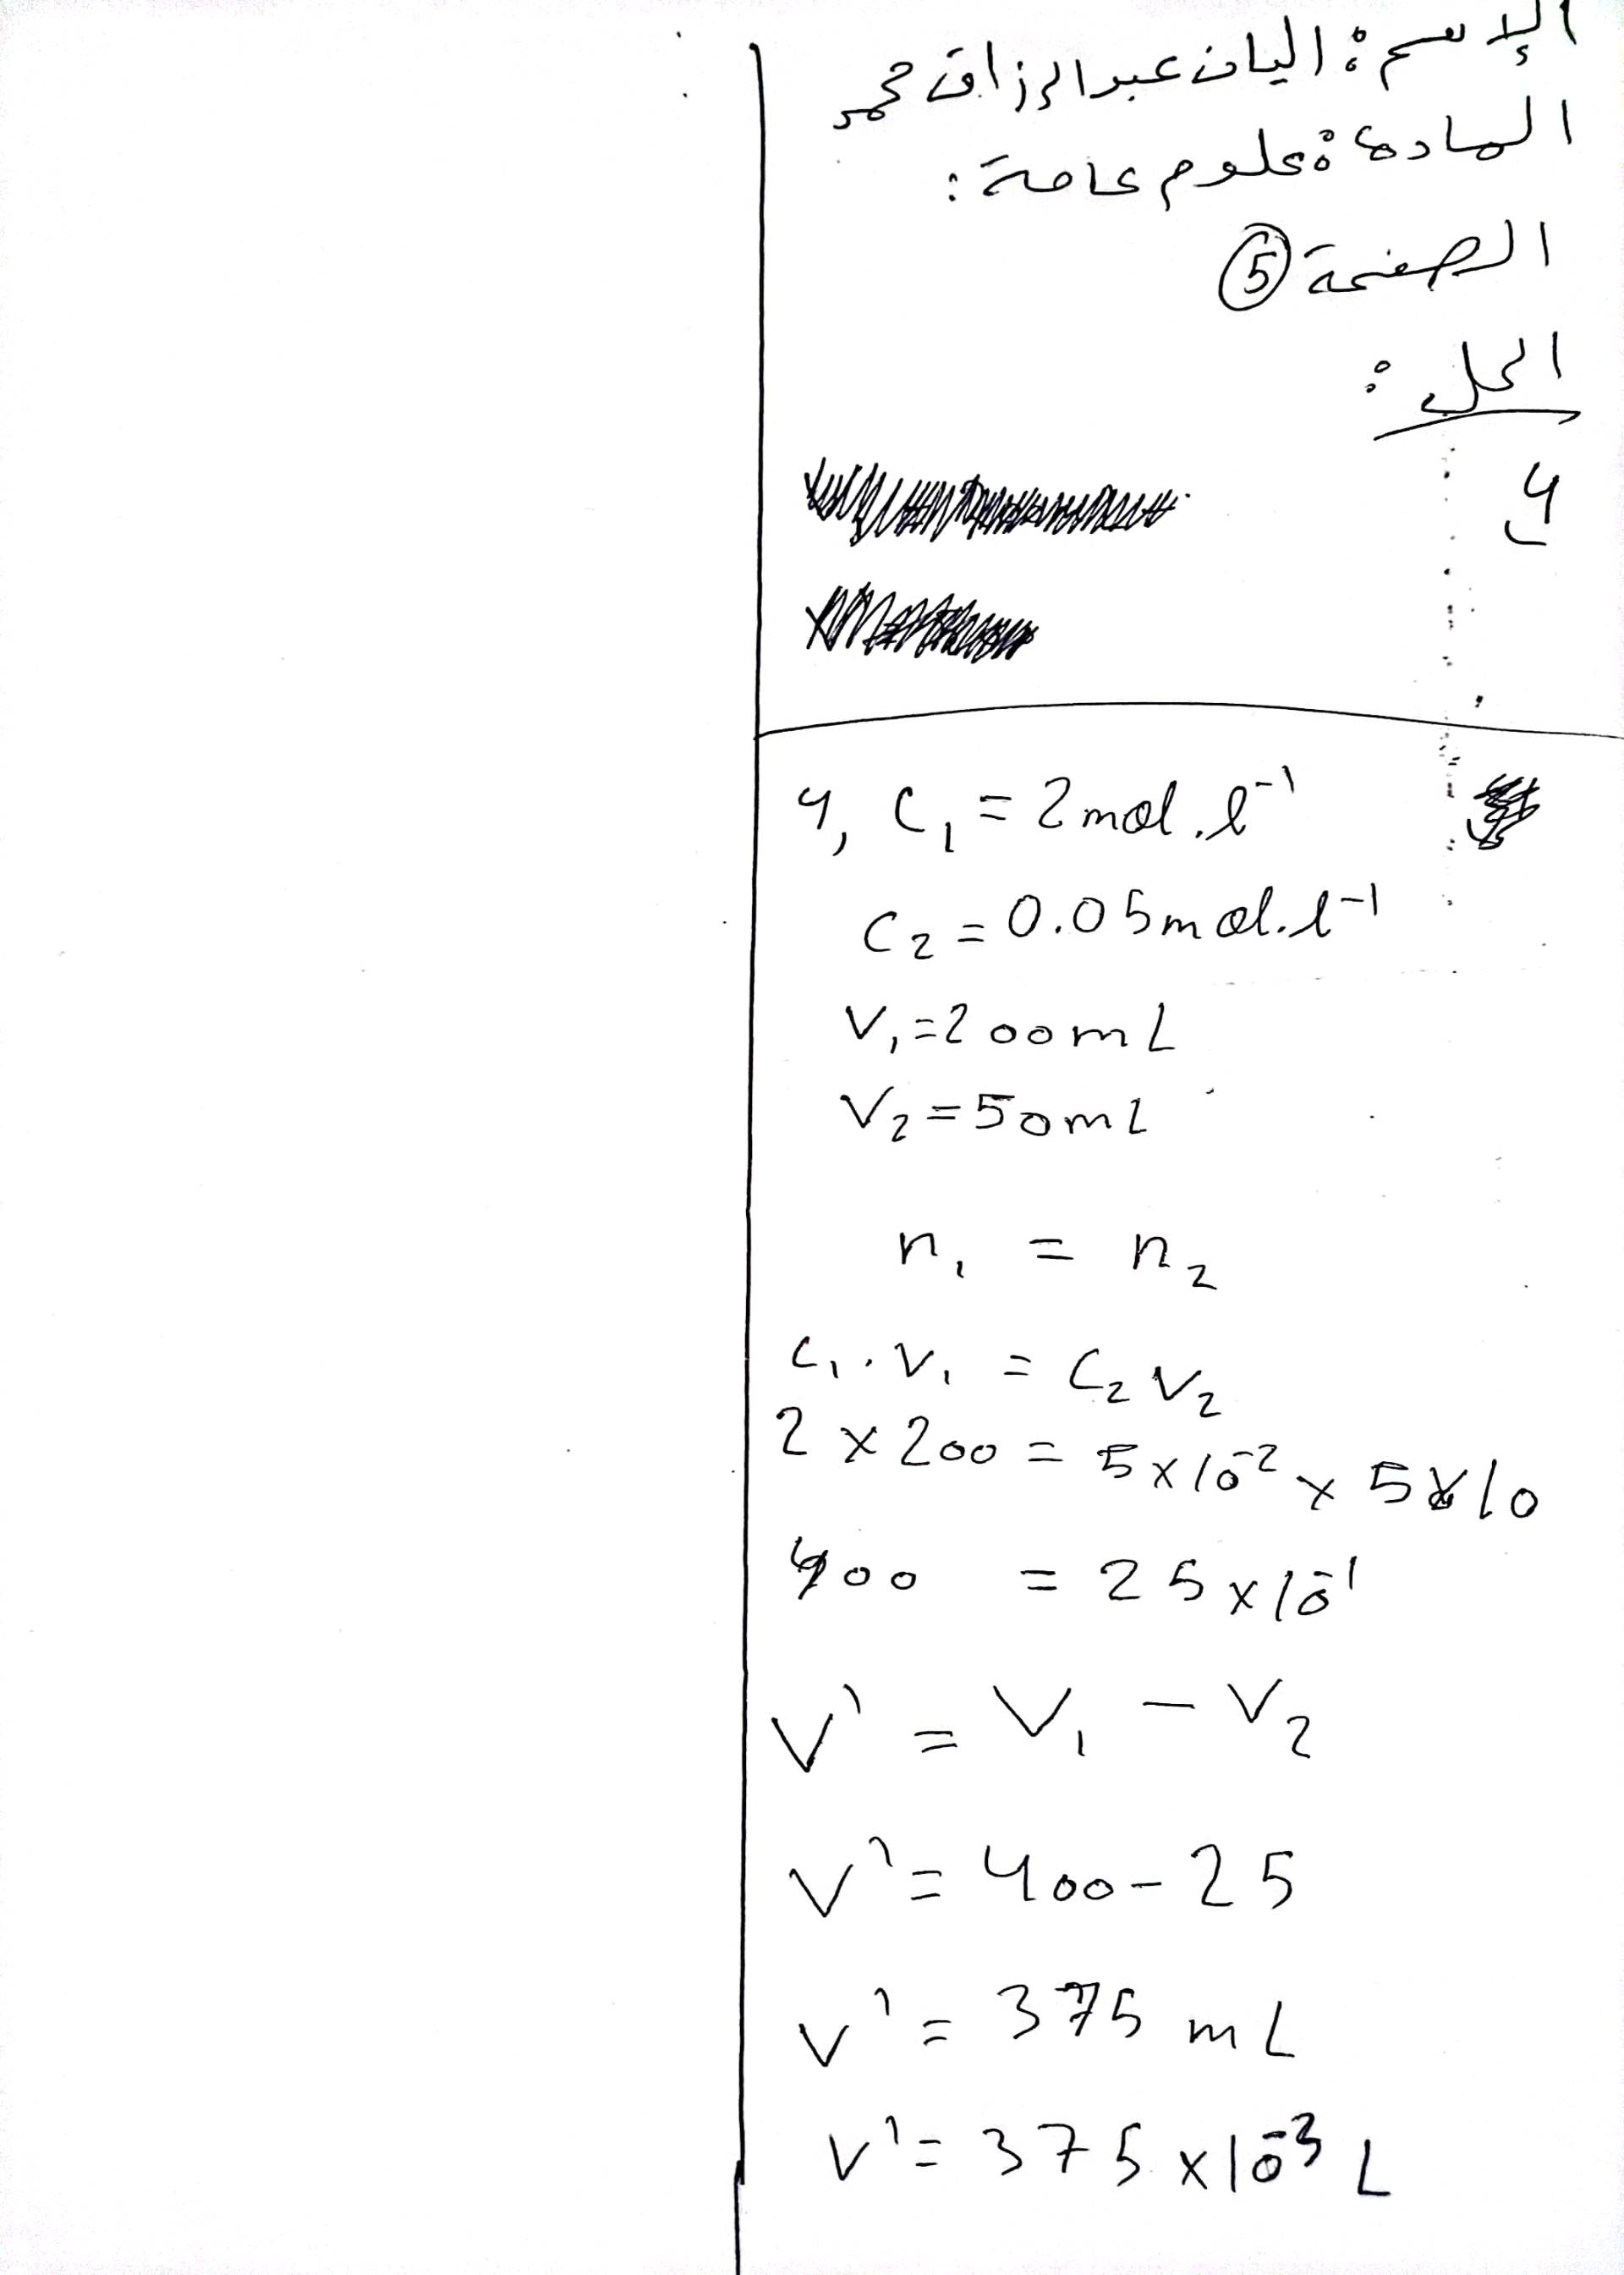 الإسم: اليان عبد الرزاق محمد
المادة: علوم عامة:
الصفحة 5
الحل:
4
4, C₁ = 2 mol.l⁻¹
C₂ = 0.05 mol.l⁻¹
V₁ = 200 mL
V₂ = 50 mL
n₁ = n₂
C₁ . V₁ = C₂ V₂
2 × 200 = 5 × 10⁻² × 5 × 10
400 = 25 × 10⁻¹
V' = V₁ - V₂
V' = 400 - 25
V' = 375 mL
V' = 375 × 10⁻³ L